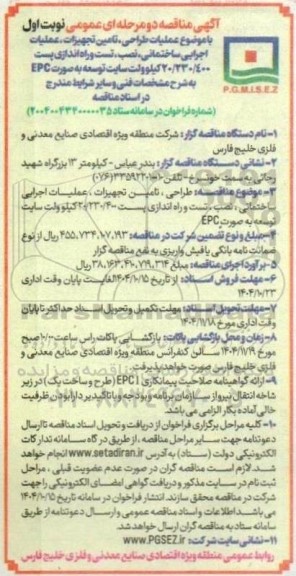 آگهی مناقصه دو مرحله ای عمومی نوبت اول
با موضوع عملیات طراحی، تامین تجهیزات، عملیات
اجرایی ساختمانی، نصب، تست و راه اندازی پست
۲۰/۲۳۰/۴۰۰ کیلو ولت سایت توسعه به صورت EPC
به شرح مشخصات فنی و سایر شرایط مندرج
در اسناد مناقصه
P.G.M.I.S.E.Z
(شماره فراخوان در سامانه ستاد ۲۰۰۴۰۰۴۳۴۰۰۰۰۰۳۵)
۱-نام دستگاه مناقصه گزار: شرکت منطقه ویژه اقتصادی صنایع معدنی و
فلزی خلیج فارس
۲-نشانی دستگاه مناقصه گزار: بندرعباس - کیلومتر ۱۳ بزرگراه شهید
رجائی به سمت خونسرخ - تلفن
۳-موضوع مناقصه: طراحی، تامین تجهیزات، عملیات اجرایی
ساختمانی، نصب، تست و راه اندازی پست ۲۰/۲۳۰/۴۰۰ کیلو ولت سایت
توسعه به صورت EPC
۴-مبلغ و نوع تضمین شرکت در مناقصه: ۴۵۵,۷۳۴,۰۷۰,۱۹۳ ریال از نوع
ضمانت نامه بانکی یا فیش واریزی به نفع مناقصه گزار
۵-برآورد اجرای مناقصه: مبلغ ۳۸,۱۶۳,۴۱۰,۷۱۹,۳۱۴ ریال.
۶-مهلت فروش اسناد: از تاریخ ۱۴۰۴/۱۰/۱۵ لغایت پایان وقت اداری
۱۴۰۴/۱۰/۲۳
۷-مهلت تحویل اسناد: مهلت تکمیل و تحویل اسناد حداکثر تا پایان
وقت اداری مورخ ۱۴۰۴/۱۱/۱۸
۸-زمان و محل بازگشایی پاکات: بازگشایی پاکات راس ساعت ۱۰:۰۰ صبح
مورخ ۱۴۰۴/۱۱/۱۹ سالن کنفرانس منطقه ویژه اقتصادی صنایع معدنی و
فلزی خلیج فارس صورت خواهد پذیرفت.
۹-ارائه گواهینامه صلاحیت پیمانکاری EPC (طرح و ساخت یک) در زیر
شاخه انتقال نیرو از سازمان برنامه و بودجه و با تاکید بر دارا بودن ظرفیت
خالی آماده بکار الزامی می باشد.
۱۰-کلیه مراحل برگزاری فراخوان از دریافت و تحویل اسناد مناقصه تا ارسال
دعوتنامه جهت سایر مراحل مناقصه، از طریق درگاه سامانه تدارکات
الکترونیکی دولت (ستاد) به آدرس www.setadiran.ir انجام خواهد
شد. لازم است مناقصه گران در صورت عدم عضویت قبلی، مراحل
ثبت نام در سایت مذکور و دریافت گواهی امضای الکترونیکی را جهت
شرکت در مناقصه محقق سازند. انتشار فراخوان در سامانه تاریخ ۱۴۰۴/۱۰/۱۵
می باشد. اطلاعات و اسناد مناقصه عمومی و ارسال دعوتنامه از طریق
سامانه ستاد به مناقصه گران ارسال خواهد شد.
۱۱-نشانی سایت شرکت: www.PGSEZ.ir
روابط عمومی منطقه ویژه اقتصادی صنایع معدنی و فلزی خلیج فارس